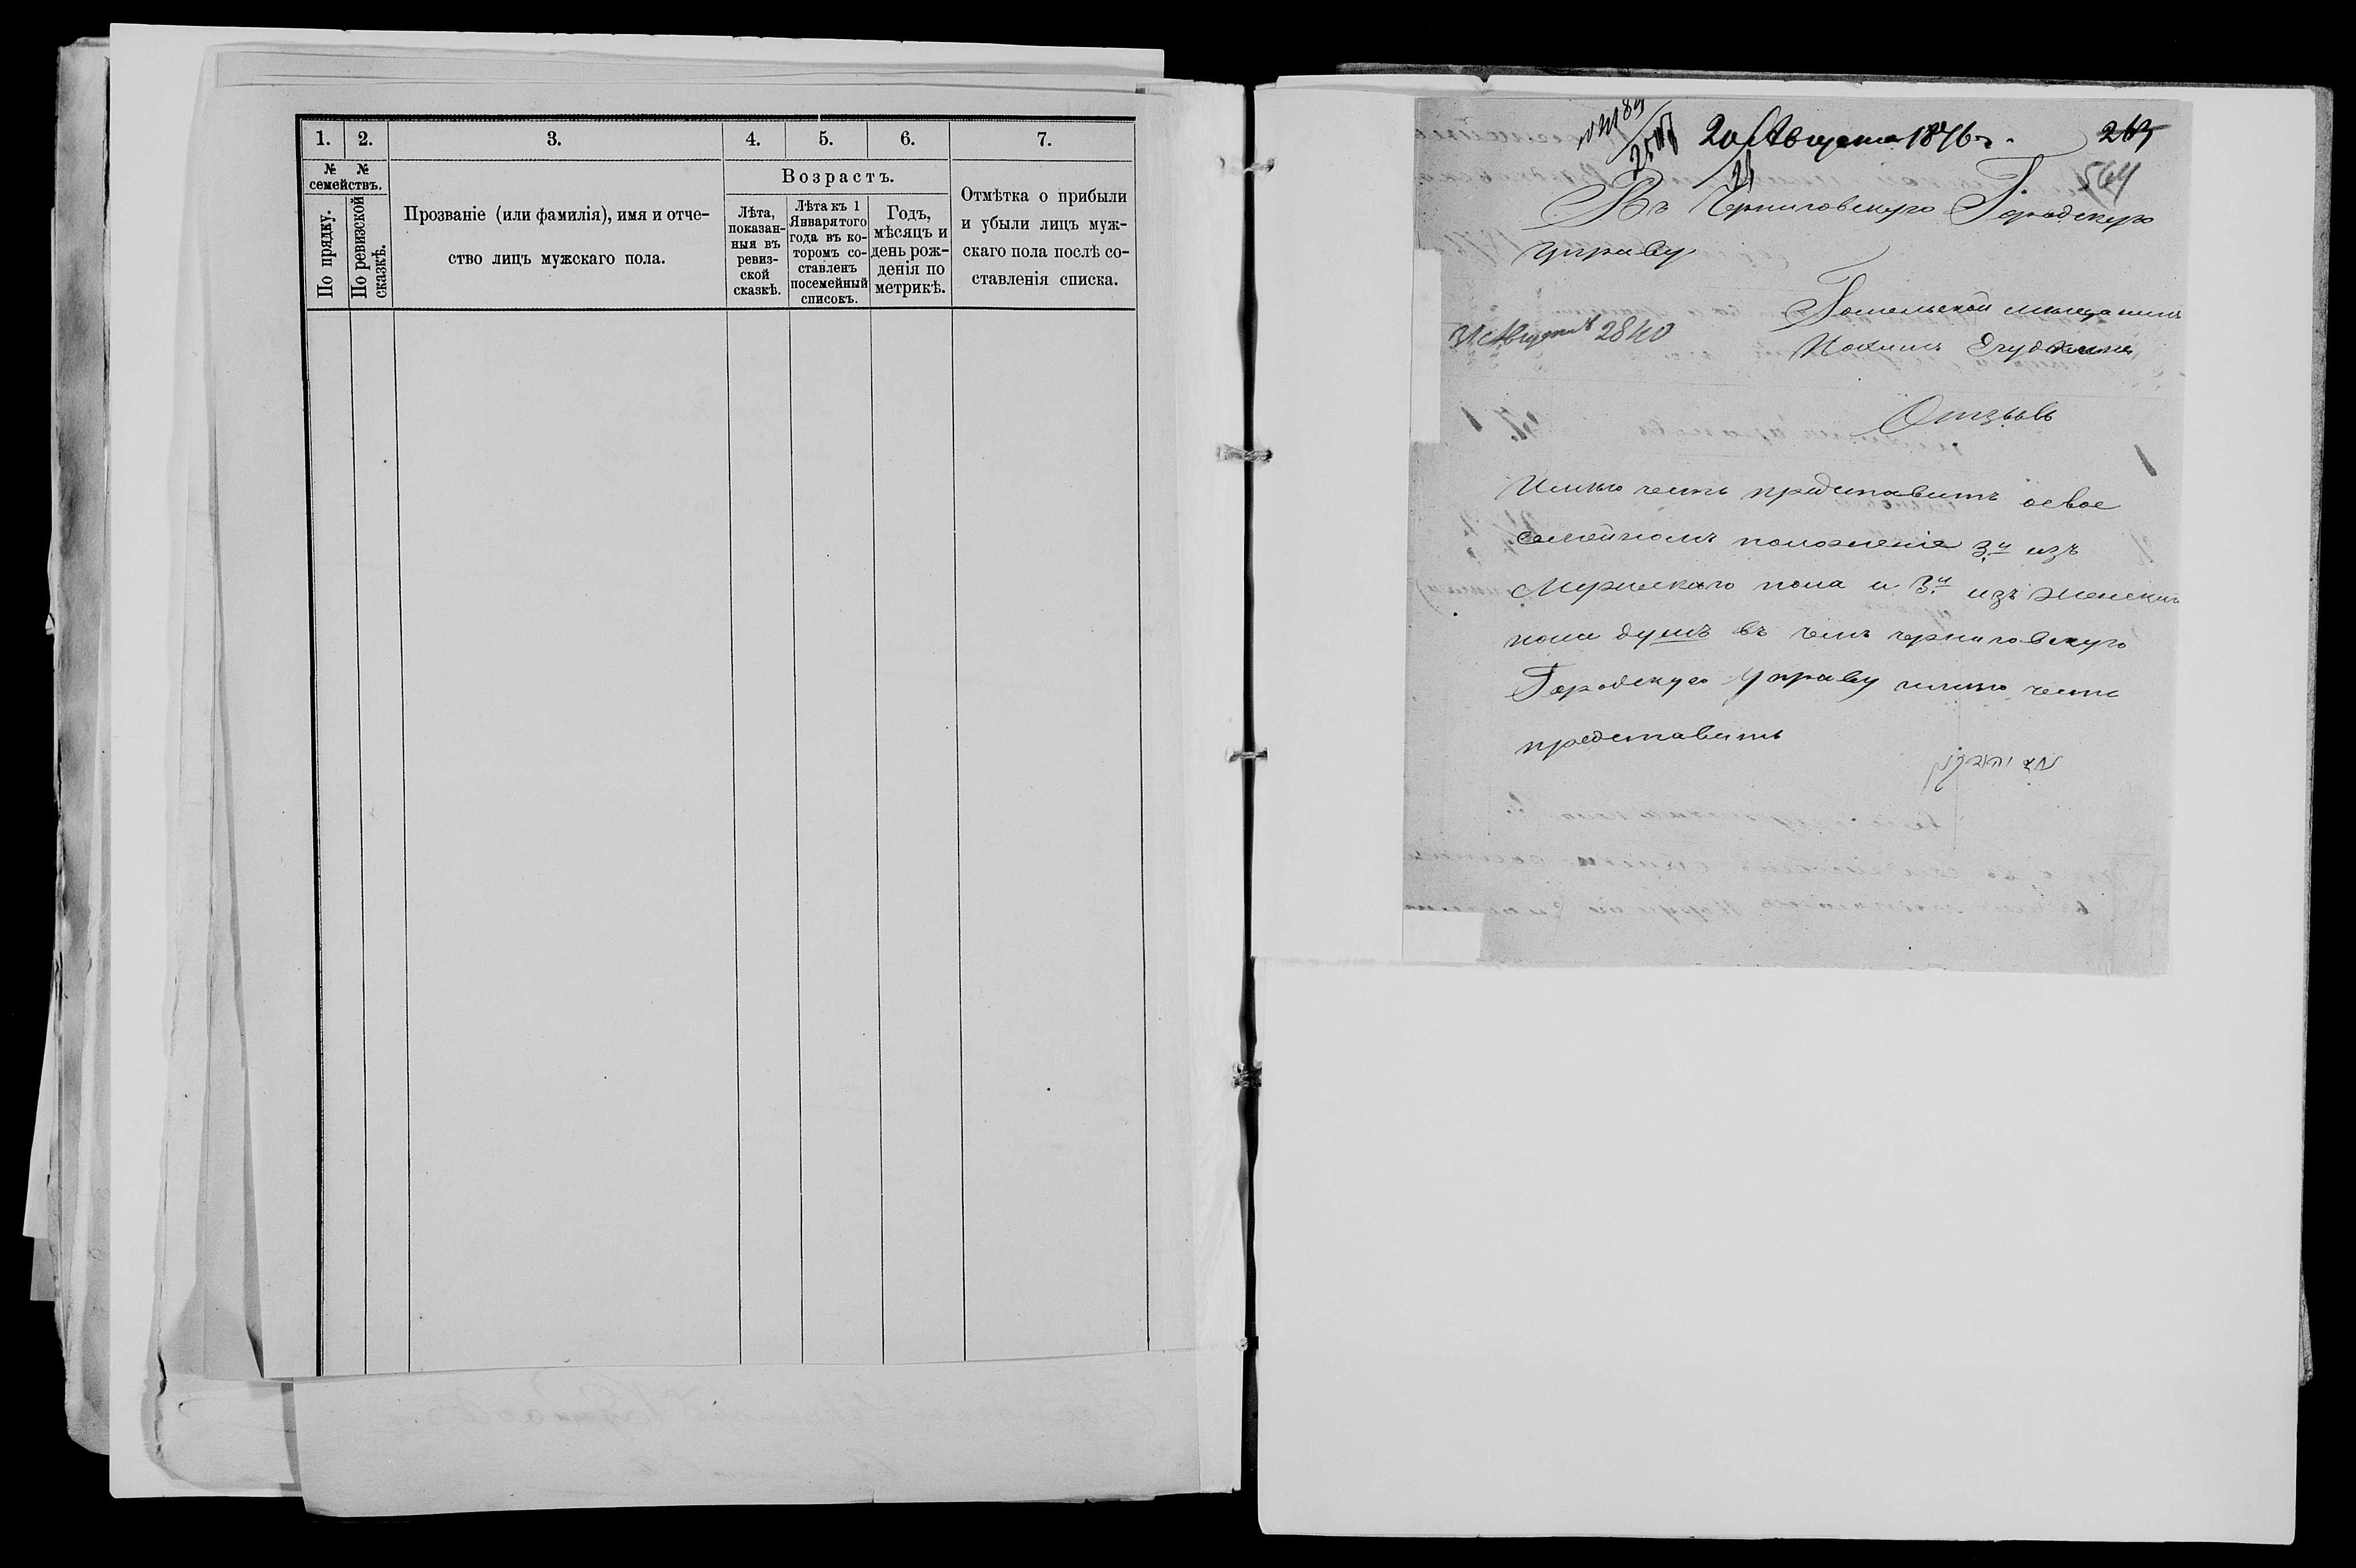 1. 2. 3. 4. 5. 6. 7.
№ № семействъ.
По прядку.
По ревизской сказкѣ.
Прозваніе (или фамилія), имя и отче-
ство лицъ мужскаго пола.
Возрастъ.
Лѣта,
показан-
ныя въ
ревиз-
ской
сказкѣ.
Лѣта къ 1
Января того
года въ ко-
торомъ со-
ставленъ
посемейный
списокъ.
Годъ,
мѣсяцъ и
день рож-
денія по
метрикѣ.
Отмѣтка о прибыли
и убыли лицъ муж-
скаго пола послѣ со-
ставленія списка.
20 Августа 1876 г.
264
Въ Черниговскую Городскую
управу
Гомельской мещанинъ
31 Августа 2840
Отзывъ
Имею честь представить освое
Семейномъ положеніе 3.й изъ
Мержскаго пола и 3.й изъ женскаго
пола душъ въ чемъ черниговскую
Городскую Управу имею честь
представить